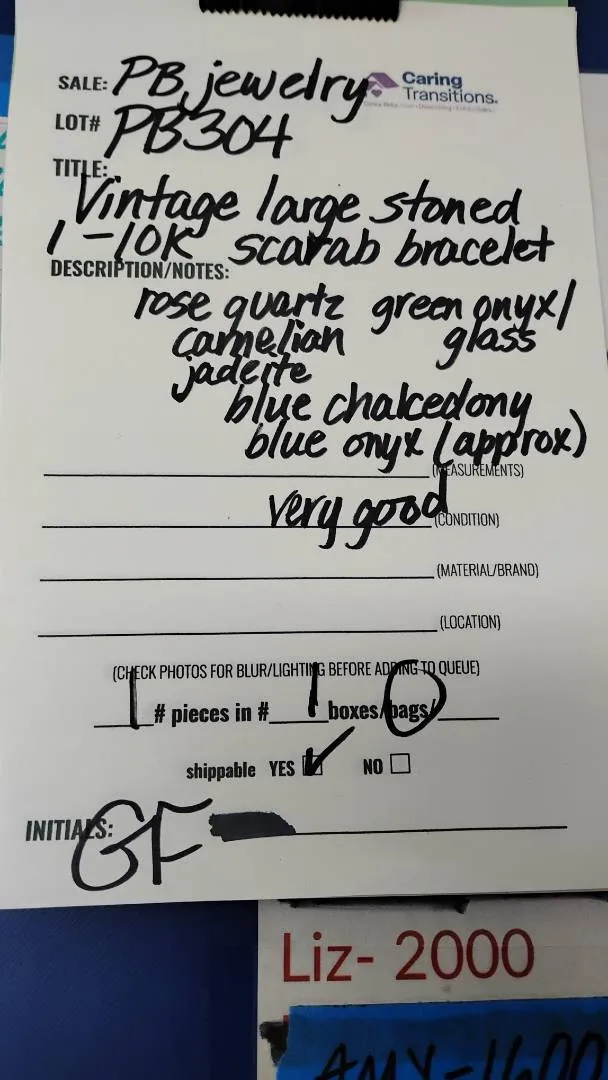 SALE: PB jewelry
Caring Transitions.
LOT# PB304
TITLE:
Vintage large stoned
1-10K scarab bracelet
DESCRIPTION/NOTES:
rose quartz green onyx/
carnelian glass
jadeite
blue chalcedony
blue onyx (approx)
(MEASUREMENTS)
very good (CONDITION)
(MATERIAL/BRAND)
(LOCATION)
(CHECK PHOTOS FOR BLUR/LIGHTING BEFORE ADDING TO QUEUE)
1 # pieces in # 1 boxes/bags/
shippable YES NO
INITIALS: GF
Liz- 2000
AMY-1600